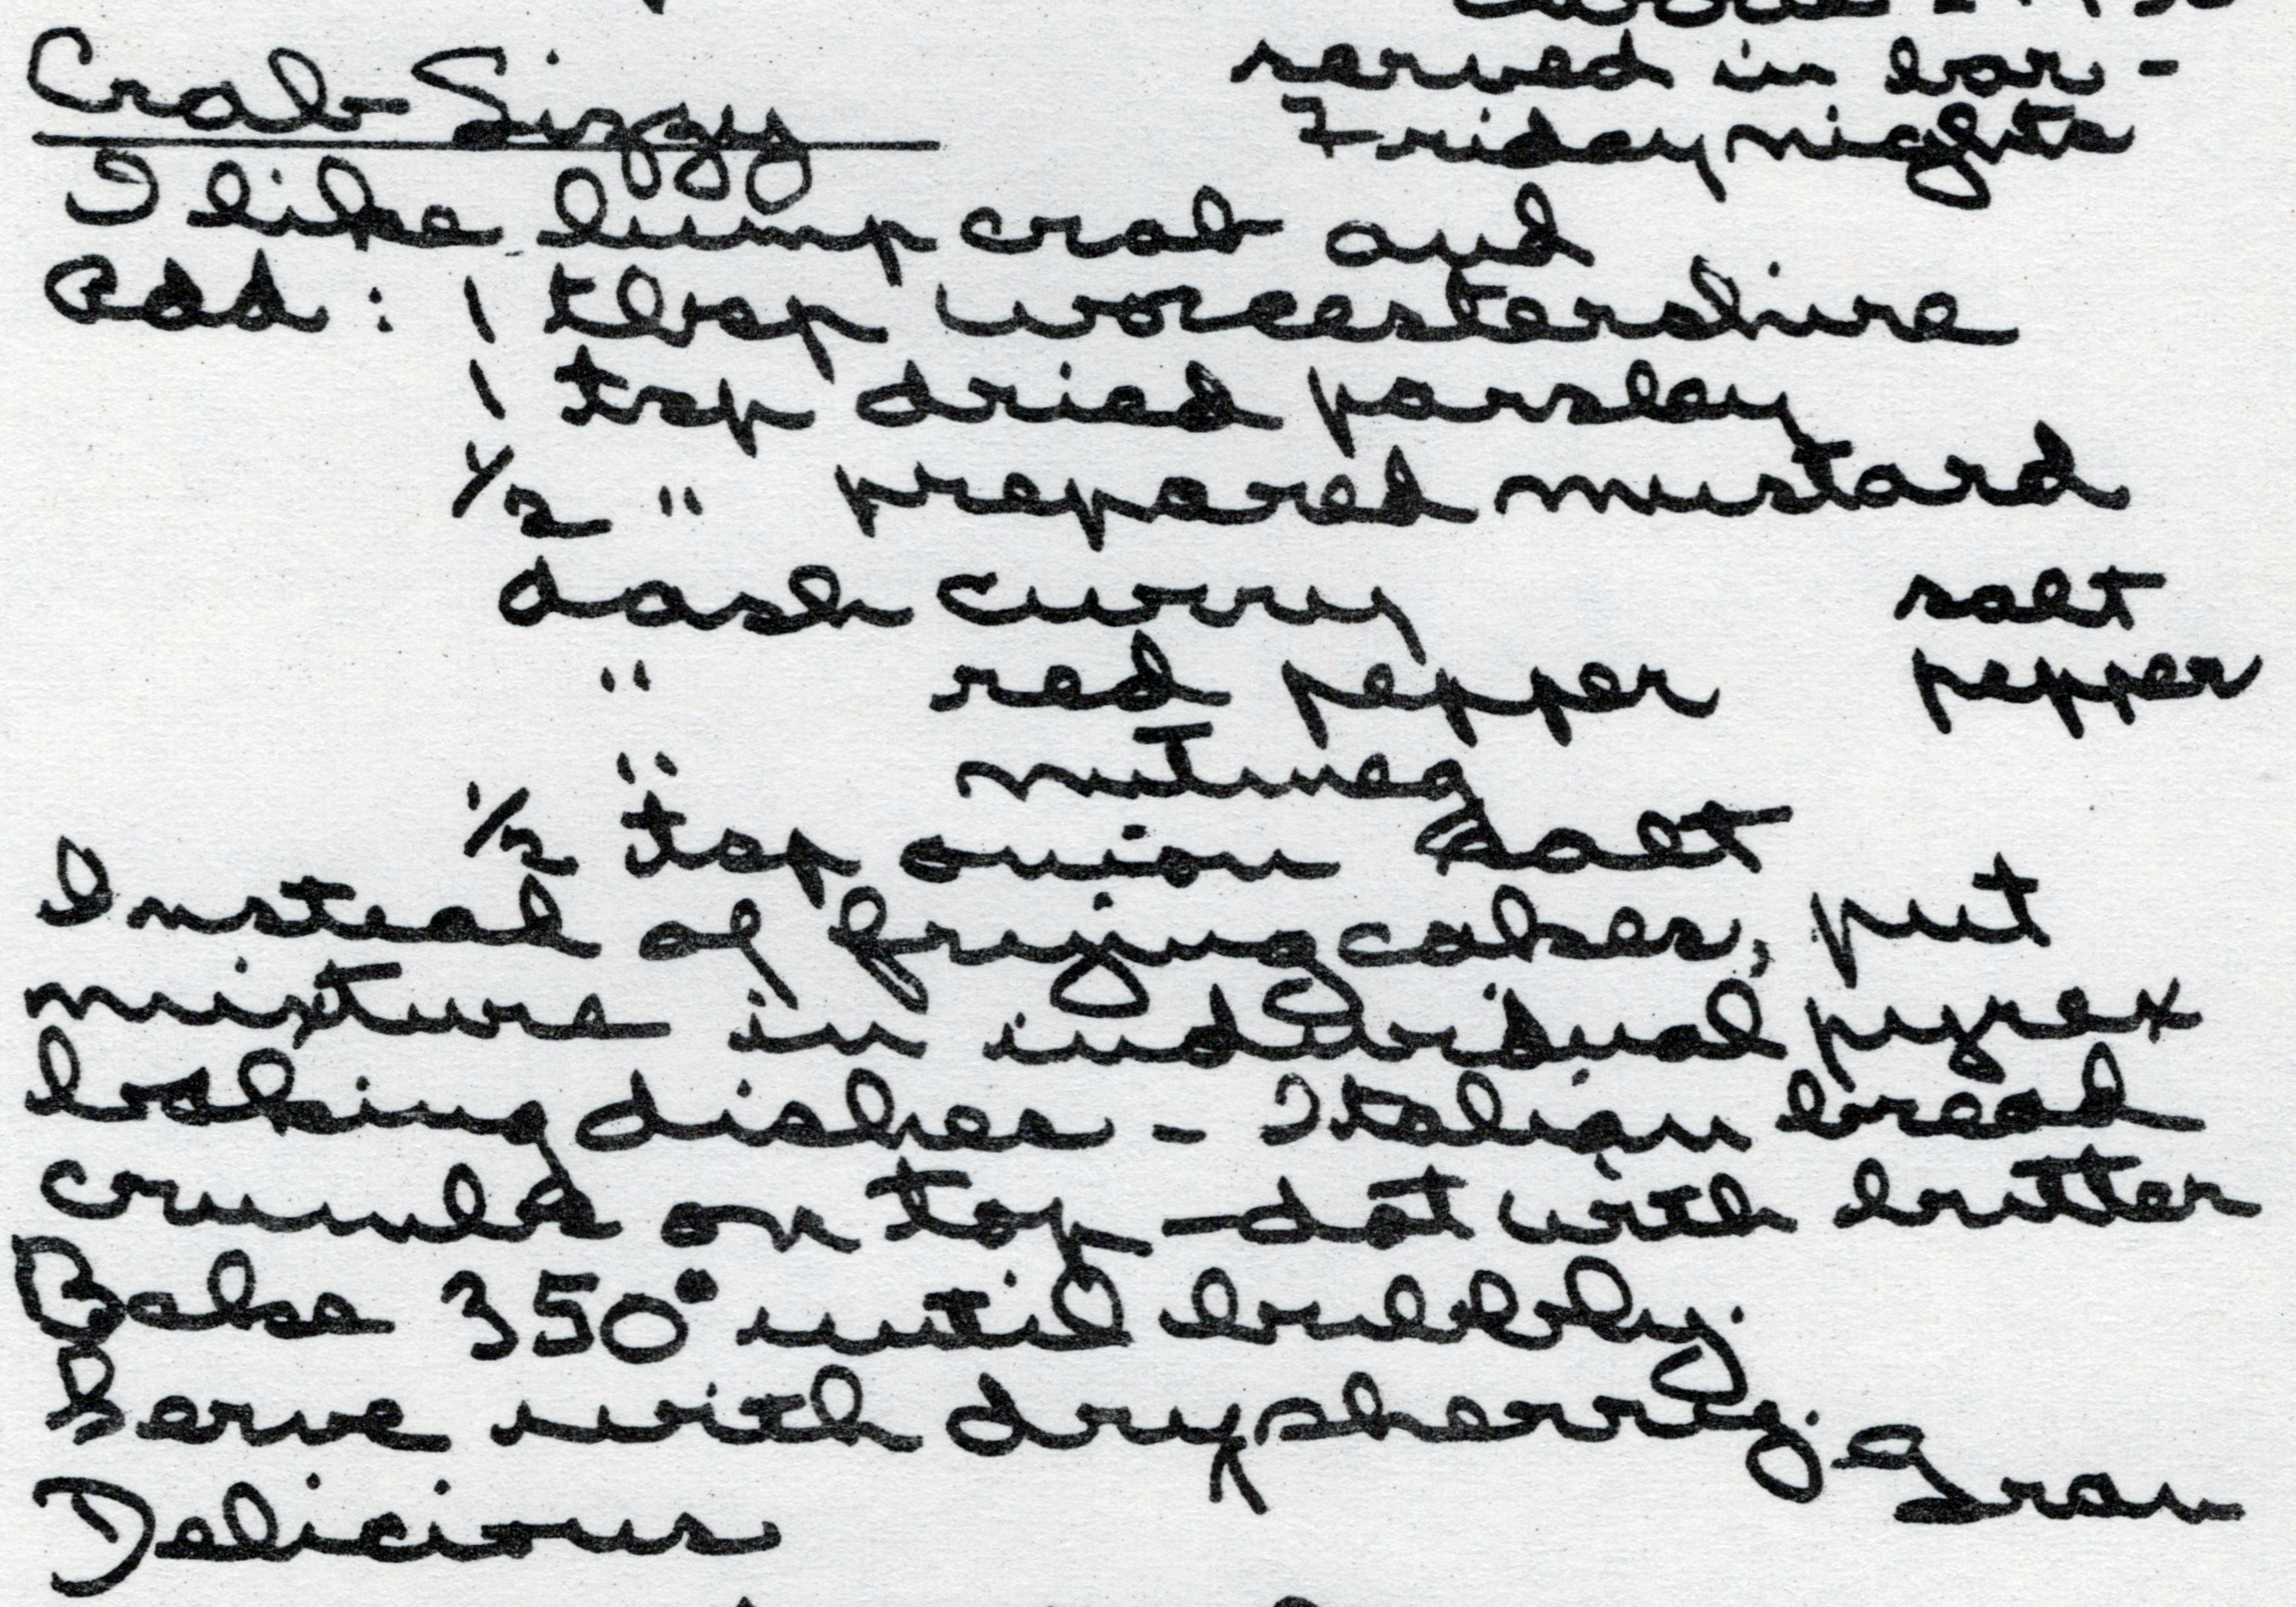 Crab Sizzy
served in bar -
Friday nights
I like lump crab and
Add: 1 tbsp worcestershire
1 tsp dried parsley
1/2 " prepared mustard
dash curry
salt
" red pepper
pepper
" nutmeg
1/2 tsp onion salt
Instead of frying cakes, put
mixture in individual pyrex
baking dishes - Italian bread
crumbs on top - dot with butter
Bake 350° until bubbly.
Serve with dry sherry.
Gran
Delicious